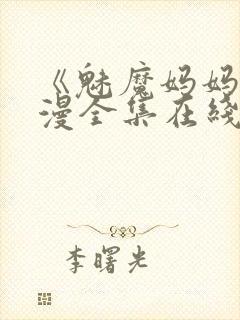 《魅魔妈妈
漫全集在线
李曙光